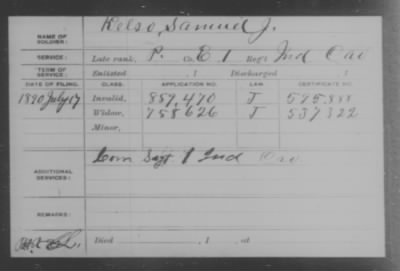 NAME OF SOLDIER: Kelso, Samuel J.
SERVICE: Late rank, P. Co. E, 1 Reg't Ind Cav
TERM OF SERVICE: Enlisted , 1 Discharged , 1
DATE OF FILING. CLASS. APPLICATION NO. LAW. CERTIFICATE NO.
1890 July 17 Invalid, 859,470 J 595.888
Widow, 758626 J 537322
Minor,
ADDITIONAL SERVICES: Com Sgt 1 Ind Cav.
REMARKS:
Died , 1 , at